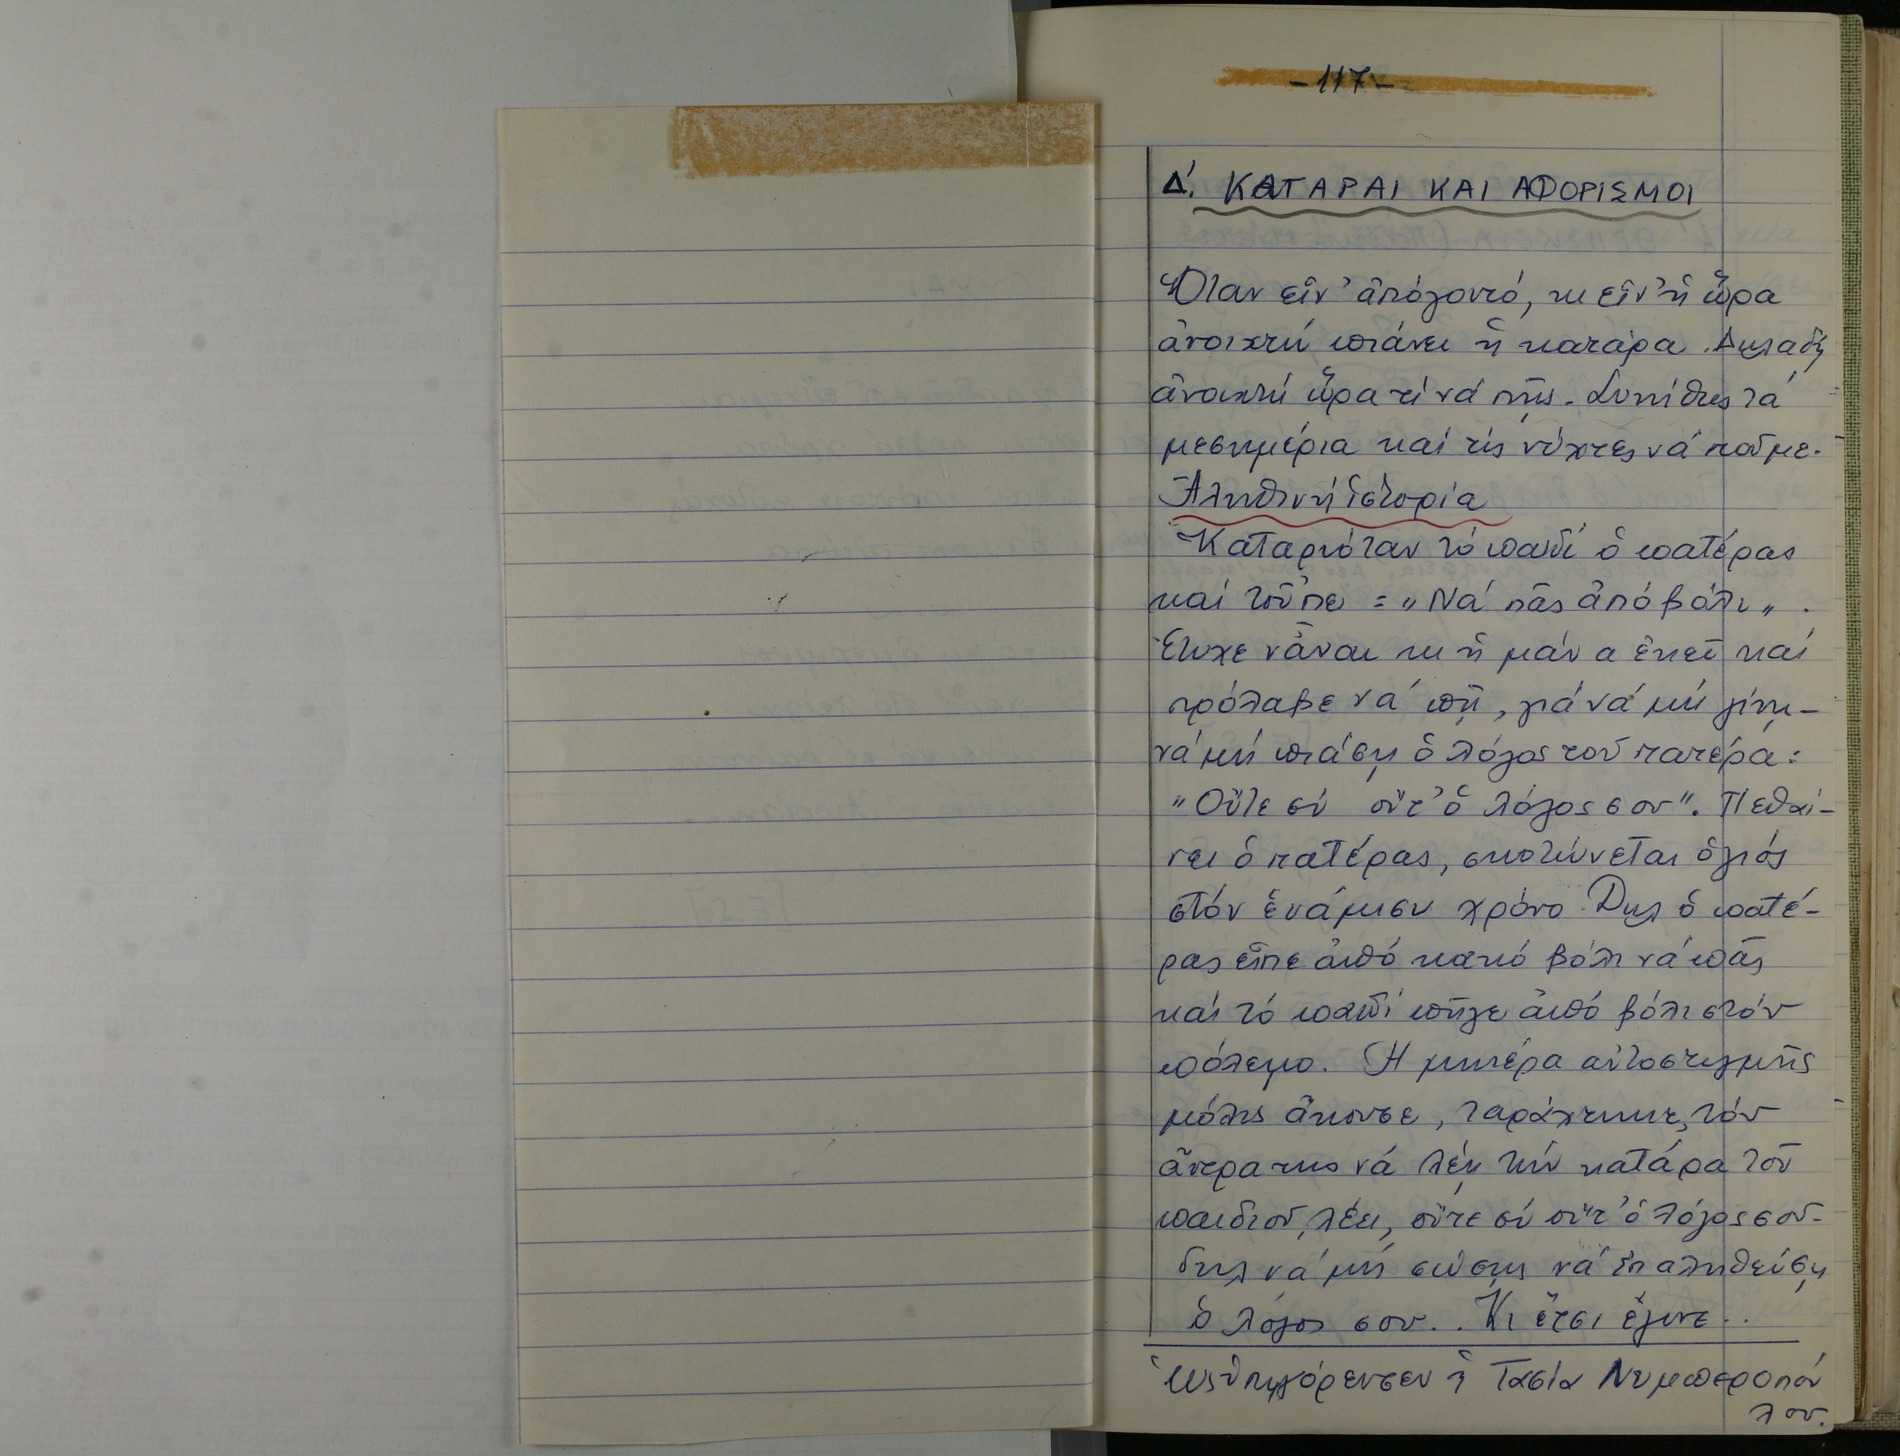 -117-
Δ'. ΚΑΤΑΡΑΙ ΚΑΙ ΑΦΟΡΙΣΜΟΙ
Ὅταν εἶν' ἀπόγοντό, κι εἶν' ἡ ὥρα
ἀνοιχτή πιάνει ἡ κατάρα. Δηλαδή
ἀνοιχτή ὥρα τί νά πῆς. Συνήθως τά
μεσημέρια καί τίς νύχτες νά ποῦμε.
Ἀληθινή ἱστορία
Καταριόταν τό παιδί ὁ πατέρας
καί τοὖπε = „Νά πᾶς ἀπό βόλι„.
Ἔτυχε νἆναι κι ἡ μάνα ἐκεῖ καί
πρόλαβε νά πῆ, γιά νά μή γίνη-
νά μή πιάση ὁ λόγος τοῦ πατέρα:
"Οὔτε σύ οὔτ' ὁ λόγος σου". Πεθαί-
νει ὁ πατέρας, σκοτώνεται ὁ γιός
στόν ἑνάμιση χρόνο. Δηλ ὁ πατέ-
ρας εἶπε ἀπό κακό βόλι νά πᾶς
καί τό παιδί πῆγε ἀπό βόλι στόν
πόλεμο. Ἡ μητέρα αὐτοστιγμῆς
μόλις ἄκουσε, ταράχτηκε, τόν
ἄντρα της νά λέη τήν κατάρα τοῦ
παιδιοῦ, λέει, οὔτε σύ οὔτ' ὁ λόγος σου-
δηλ νά μή σώσης νά ἐπαληθεύση
ὁ λόγος σου.. Κι ἔτσι ἔγινε..
Ὡς ὑπηγόρευσεν ἡ Τασία Νυμπεροπού
λου.